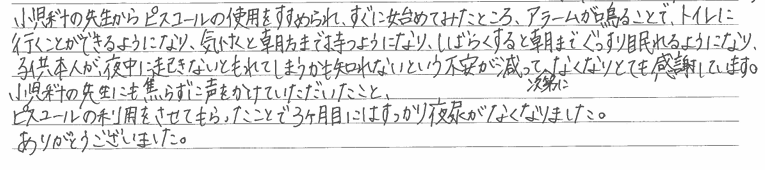 小児科の先生からピスコールの使用をすすめられ、すぐに始めてみたところ、アラームが鳴ることで、トイレに
行くことができるようになり、気付くと朝方まで持つようになり、しばらくすると朝までぐっすり眠れるようになり、
子供本人が、夜中に起きないともれてしまうかも知れないという不安が減って、次第になくなりとても感謝しています。
小児科の先生にも焦らずに声をかけていただいたこと、
ピスコールの利用をさせてもらったことで3ヶ月目にはすっかり夜尿がなくなりました。
ありがとうございました。